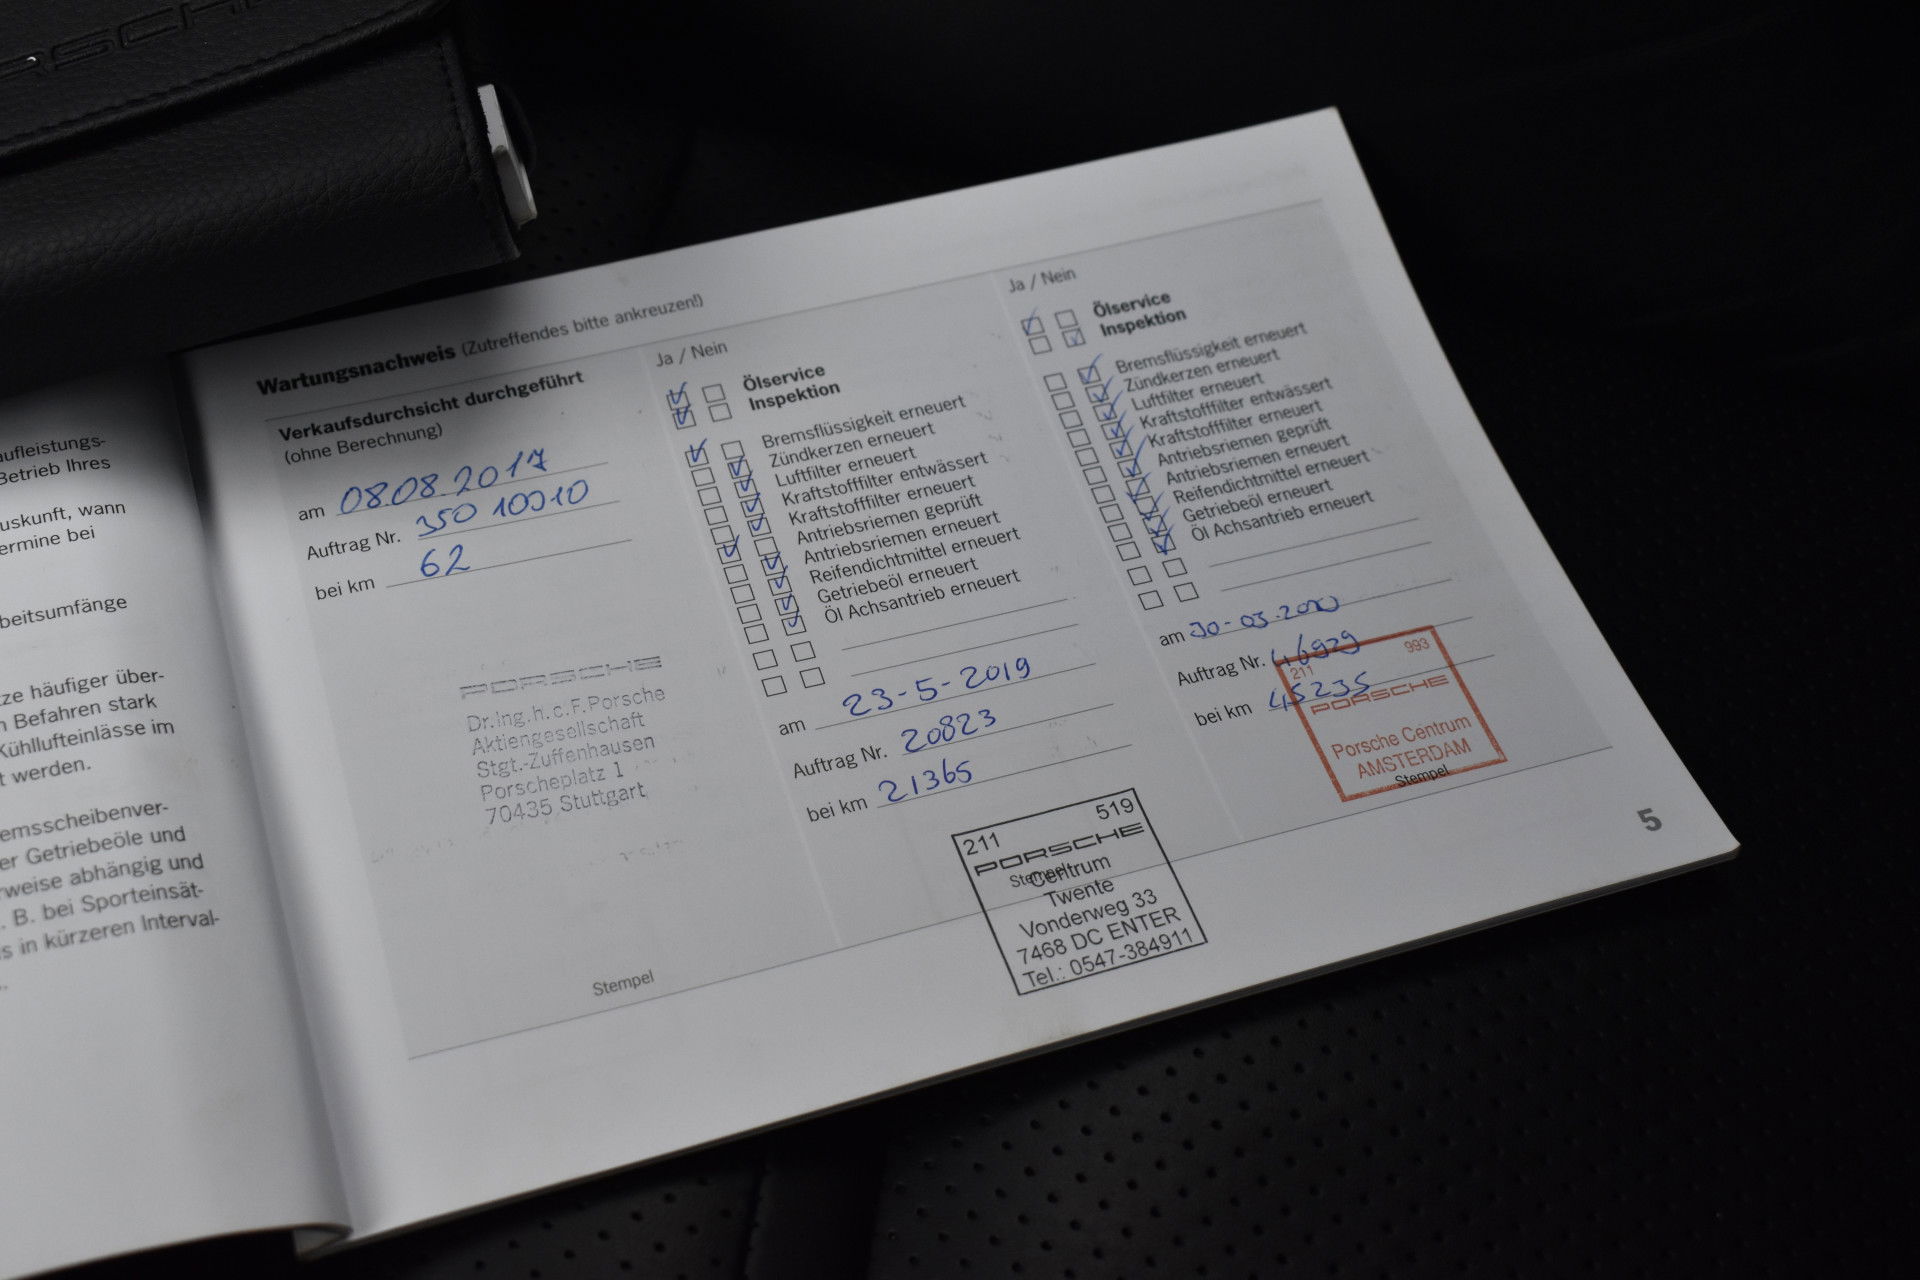 PORSCHE
aufleistungs-
Betrieb Ihres
uskunft, wann
ermine bei
beitsumfänge
tze häufiger über-
n Befahren stark
Kühllufteinlässe im
t werden.
emsscheibenver-
er Getriebeöle und
rweise abhängig und
. B. bei Sporteinsät-
s in kürzeren Interval-
Wartungsnachweis (Zutreffendes bitte ankreuzen!)
Verkaufsdurchsicht durchgeführt
(ohne Berechnung)
am 08.08.2017
Auftrag Nr. 350 10010
bei km 62
PORSCHE
Dr.Ing.h.c.F.Porsche
Aktiengesellschaft
Stgt.-Zuffenhausen
Porscheplatz 1
70435 Stuttgart
Stempel
Ja / Nein
Ölservice
Inspektion
Bremsflüssigkeit erneuert
Zündkerzen erneuert
Luftfilter erneuert
Kraftstofffilter entwässert
Kraftstofffilter erneuert
Antriebsriemen geprüft
Antriebsriemen erneuert
Reifendichtmittel erneuert
Getriebeöl erneuert
Öl Achsantrieb erneuert
am 23-5-2019
Auftrag Nr. 20823
bei km 21365
211 519
PORSCHE
Stempel
Centrum
Twente
Vonderweg 33
7468 DC ENTER
Tel.: 0547-384911
Ja / Nein
Ölservice
Inspektion
Bremsflüssigkeit erneuert
Zündkerzen erneuert
Luftfilter erneuert
Kraftstofffilter entwässert
Kraftstofffilter erneuert
Antriebsriemen geprüft
Antriebsriemen erneuert
Reifendichtmittel erneuert
Getriebeöl erneuert
Öl Achsantrieb erneuert
am
Auftrag Nr. 46929
bei km 45235
211 993
PORSCHE
Porsche Centrum
AMSTERDAM
Stempel
5